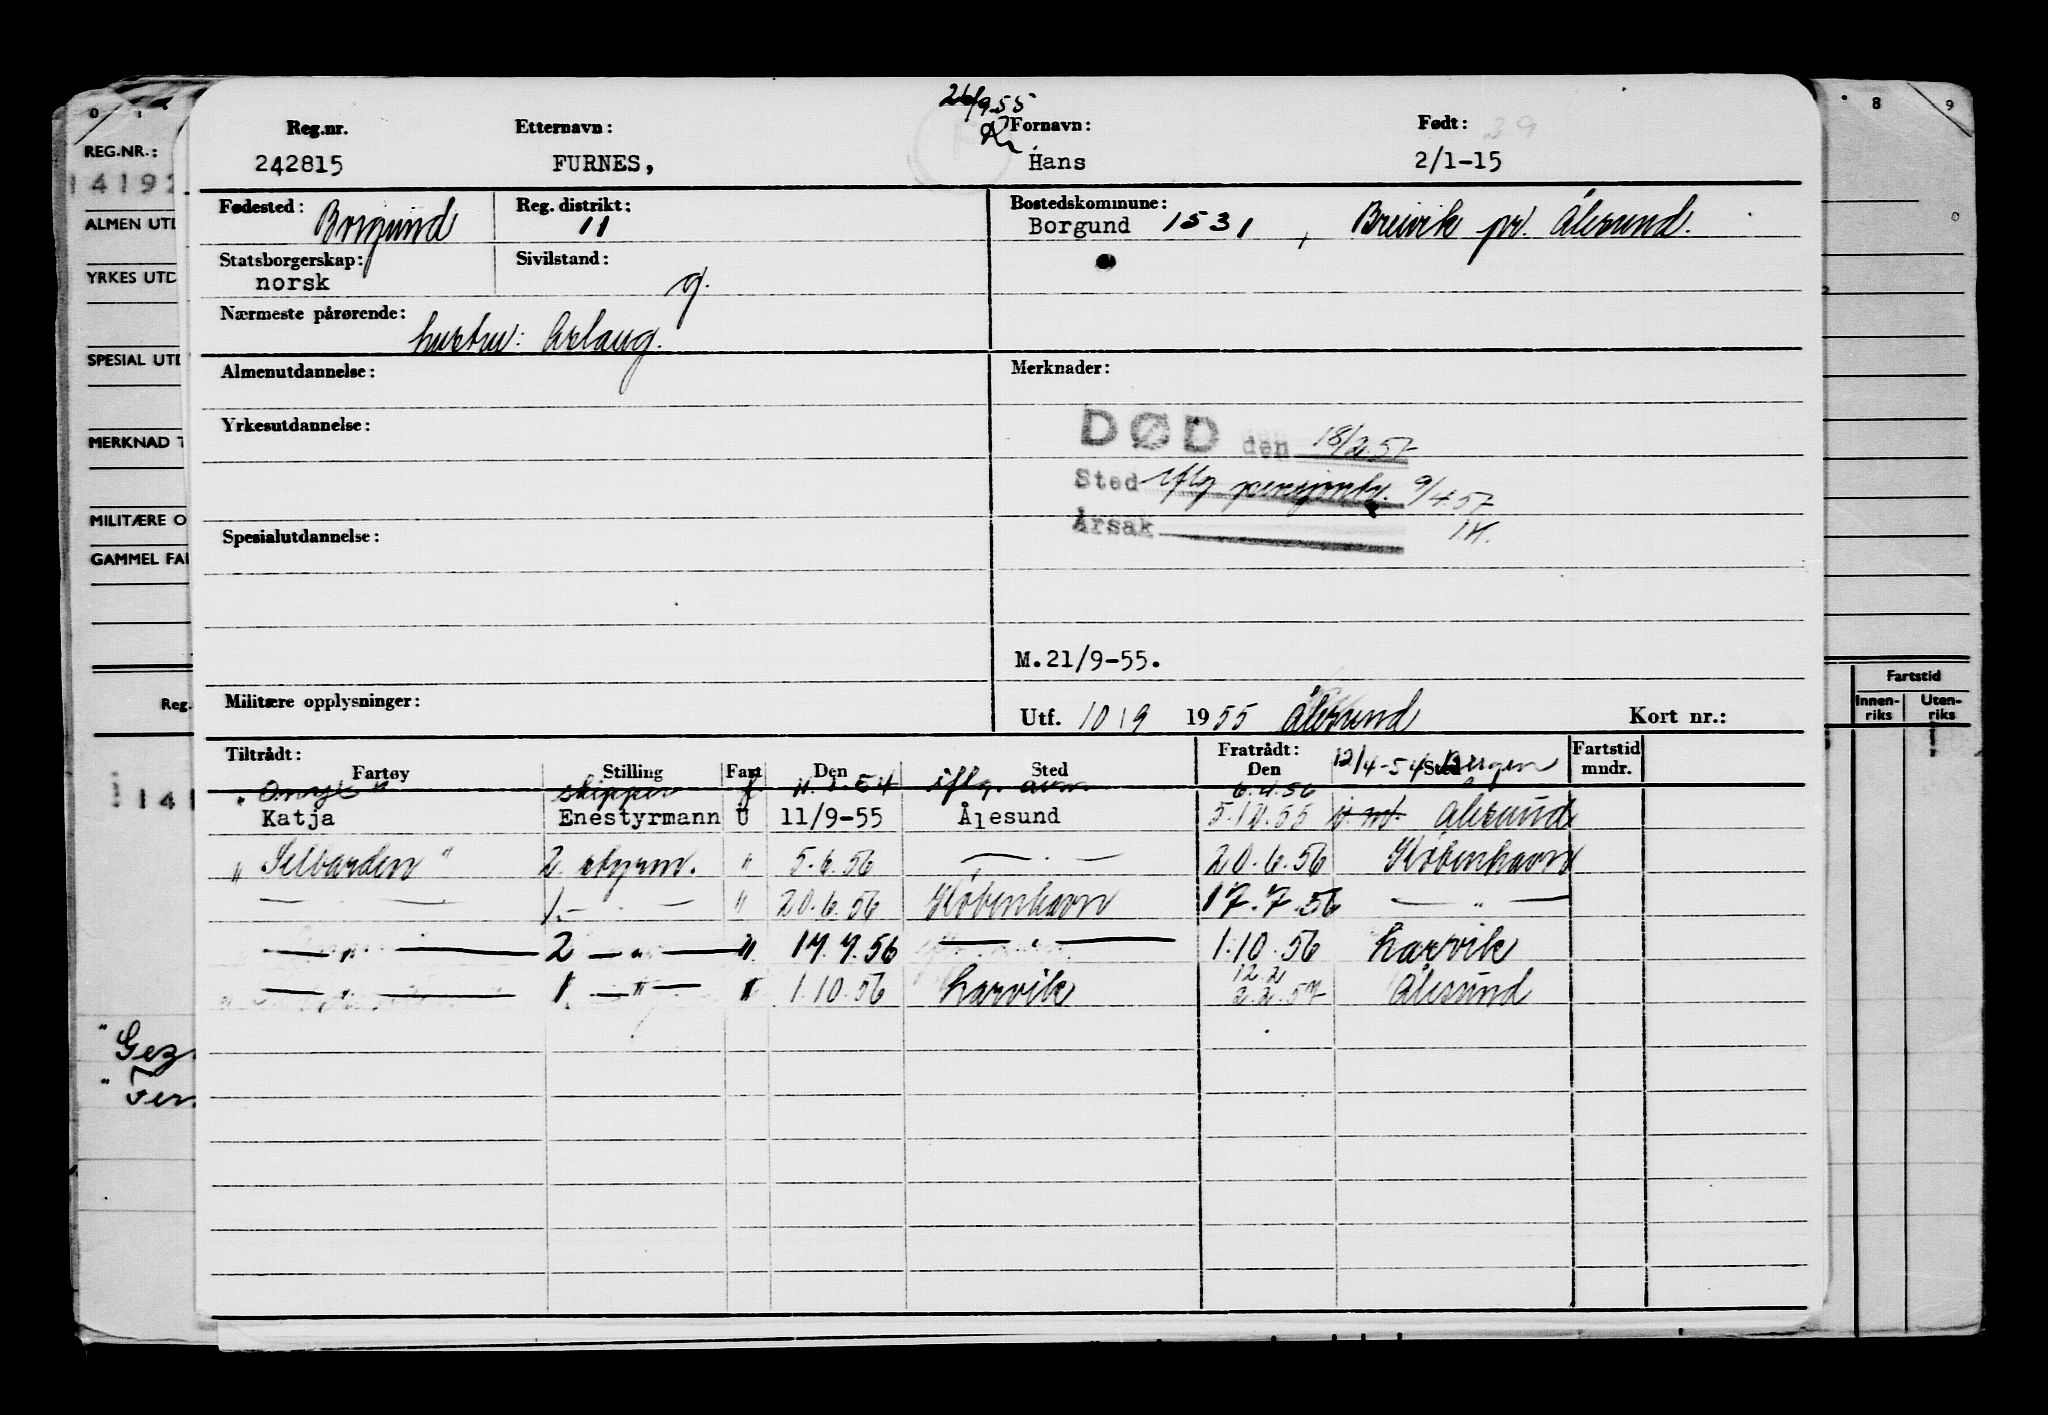 26/9.55
Reg.nr. Etternavn: Fornavn: Født:
242815 FURNES, Hans 2/1-15
Fødested: Borgund Reg. distrikt: 11 Bostedskommune: Borgund 1531, Breivik pr. Ålesund.
Statsborgerskap: norsk Sivilstand: g.
Nærmeste pårørende: hustru: Aslaug.
Almenutdannelse: Merknader:
Yrkesutdannelse: DØD den 18/2.57
Sted iflg 9/4.57
Årsak
Spesialutdannelse:
M.21/9-55.
Militære opplysninger: Utf. 10/9 1955 Ålesund Kort nr.:
Tiltrådt: Fratrådt: 12/4-54 Bergen Fartstid
Fartøy Stilling Fart Den Sted Den Sted mndr.
skipper iflg.
6.4.56
Katja Enestyrmann U 11/9-55 Ålesund 5.12.55 Ålesund
" Selbarden " 2. styrm. " 5.6.56 — . — 20.6.56 København
— . — 1. — . — " 20.6.56 København 17.7.56 — " —
— " — 2 — " — " 17.7.56 — " — 1.10.56 Larvik
12.2
— " — 1. — " — " 1.10.56 Larvik 2.2.57 Ålesund
0 1
REG.NR.:
14192
ALMEN UTD
YRKES UTD
SPESIAL UTD
MERKNAD T
MILITÆRE O
GAMMEL FA
Reg.
141
" Gez
" Fer
8 9
Fartstid
Innen-riks Uten-riks